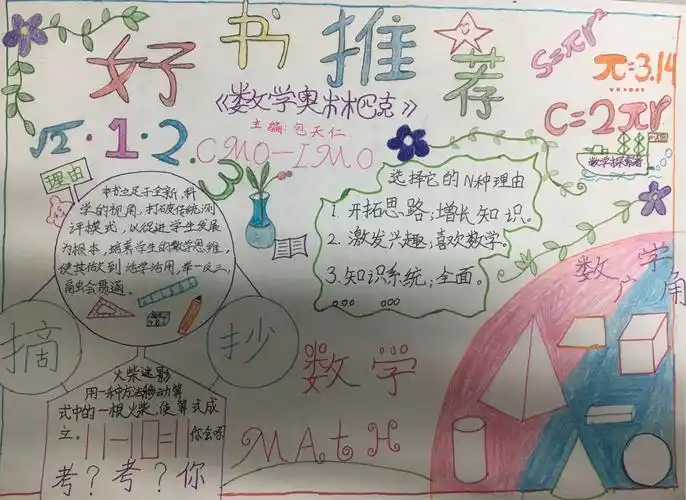 好书推荐
《数学奥林匹克》
主编:包天仁
S=πr²
π=3.14
C=2πr
√2·1·2.
3
CMO—IMO
MATH
数学探索者
理由
本书立足于全新,科
学的视角,打破传统测
评模式,以促进学生发展
为根本,培养学生的数学思维,
使其做到活学活用,举一反三,
融会贯通。
选择它的N种理由
1.开拓思路;增长知识。
2.激发兴趣;喜欢数学。
3.知识系统;全面。
。。。 。。。
数学
广角
摘
抄
火柴迷影
用一种方法移动算
式中的一根火柴,使算式成
立。11-10=11你会吗
考?考?你
数学
MAtH